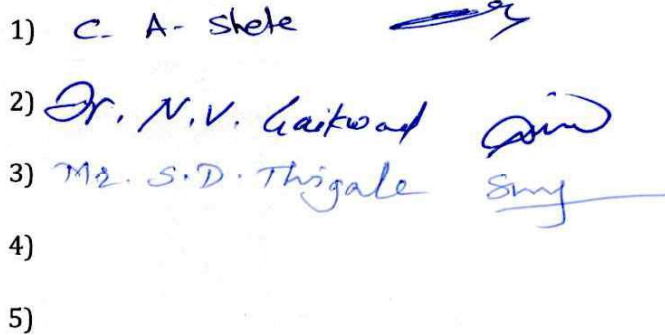 1) C. A. Shete
2) Dr. N.V. Gaikwad
3) Mr. S.D. Thigale
4)
5)